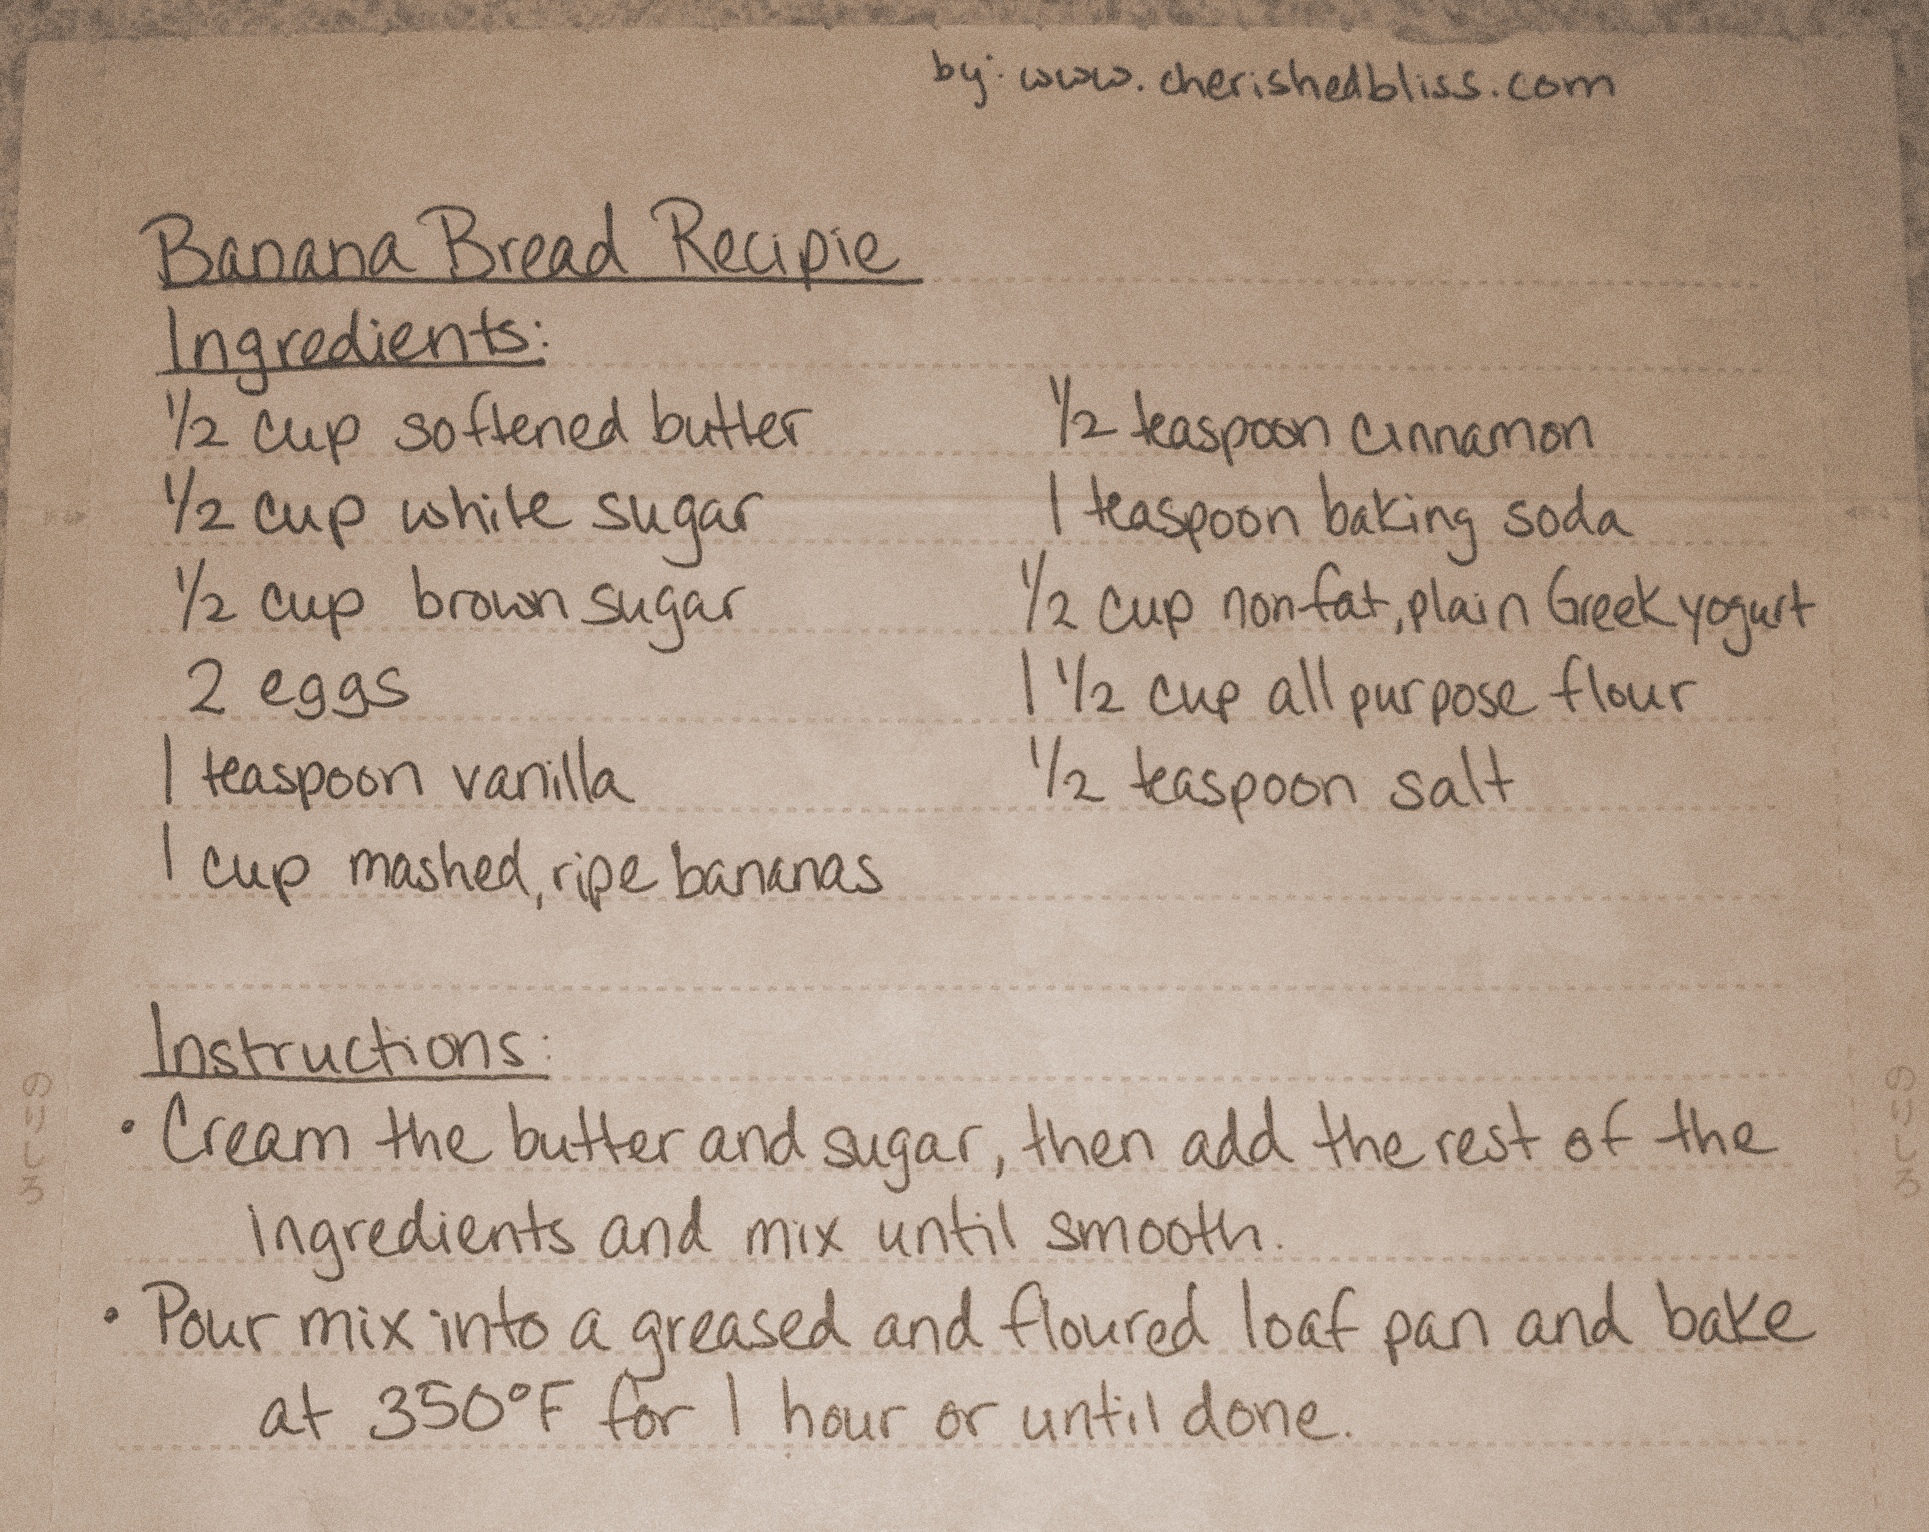 by: www.cherishedbliss.com
Banana Bread Recipie
Ingredients:
1/2 cup softened butter
1/2 cup white sugar
1/2 cup brown sugar
2 eggs
1 teaspoon vanilla
1 cup mashed, ripe bananas
1/2 teaspoon cinnamon
1 teaspoon baking soda
1/2 cup nonfat, plain Greek yogurt
1 1/2 cup all purpose flour
1/2 teaspoon salt
Instructions:
• Cream the butter and sugar, then add the rest of the
Ingredients and mix until smooth.
• Pour mix into a greased and floured loaf pan and bake
at 350°F for 1 hour or until done.
のりしろ
のりしろ